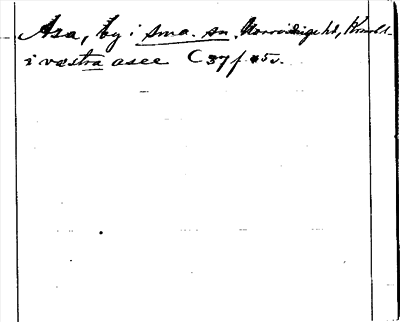 Asa, by i sma. sn. Norrvidinge hd, Kronob. l.
i västra asee C 37 f. 45 v.